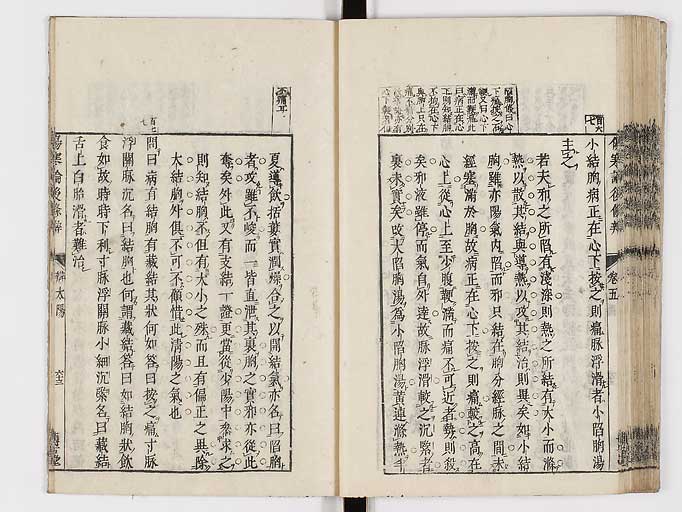 小結胸病正在心下按之則痛脉浮滑者小陷胸湯
主之
若夫邪之所陷有淺深則熱之所結有大小而滌
熱以散其結與導熱以攻其結治則異矣如小結
胸雖亦陽氣內陷而邪只結在胸分經脉之間未
經塞滿於胸故病正在心下按之則痛較之高在
心上從心上至少腹鞕滿而痛不可近者勢則殺
矣邪液雖停而氣自外達故脉浮滑較之沉緊者
裏未實矣故大陷胸湯為小陷胸湯黃連滌熱半
夏導飲括蔞實潤燥合之以開結氣亦名曰陷胸
者攻雖不峻而一皆直泄其裏胸之實邪亦從此
奪矣外此又有支結一證更當從少陽中參求之
則知結胸不但有大小之殊而且有偏正之異除
大結胸外俱不可不顧惜此清陽之氣也
問曰病有結胸有藏結其狀何如答曰按之痛寸脉
浮關脉沉名曰結胸也何謂藏結答曰如結胸狀飲
食如故時時下利寸脉浮關脉小細沉緊名曰藏結
舌上白胎滑者難治
卷五
辨太陽